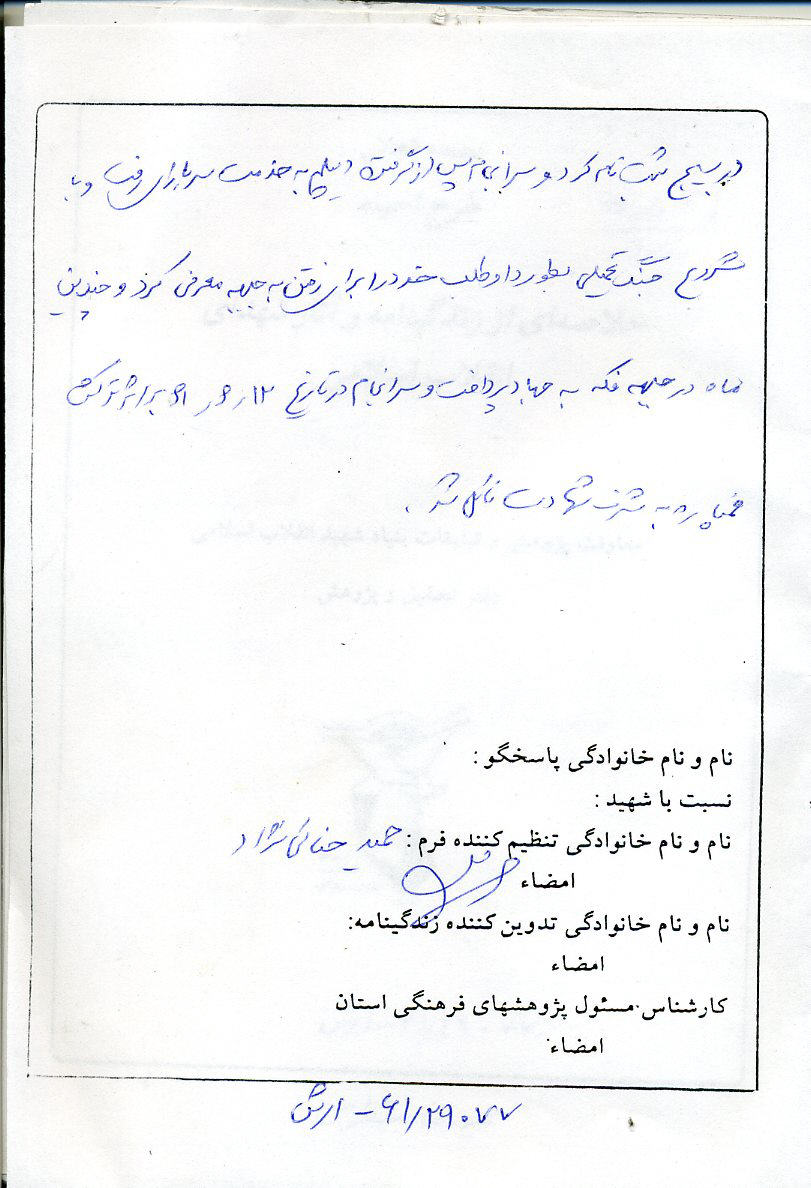 در بسیج ثبت نام کرد و سرانجام پس از گرفتن دیپلم به خدمت سربازی رفت و با
شروع جنگ تحمیلی بطور داوطلب خود را برای رفتن به جبهه معرفی کرد و چندین
ماه در جبهه فکه به جهاد پرداخت و سرانجام در تاریخ ۱۲ر۳ر۶۱ بر اثر ترکش
خمپاره به شرف شهادت نائل شد.
نام و نام خانوادگی پاسخگو :
نسبت با شهید :
نام و نام خانوادگی تنظیم کننده فرم : حمید حنائی نژاد
امضاء
نام و نام خانوادگی تدوین کننده زندگینامه:
امضاء
کارشناس مسئول پژوهشهای فرهنگی استان
امضاء
۶۱/۲۹۰۷۷ – ارتش